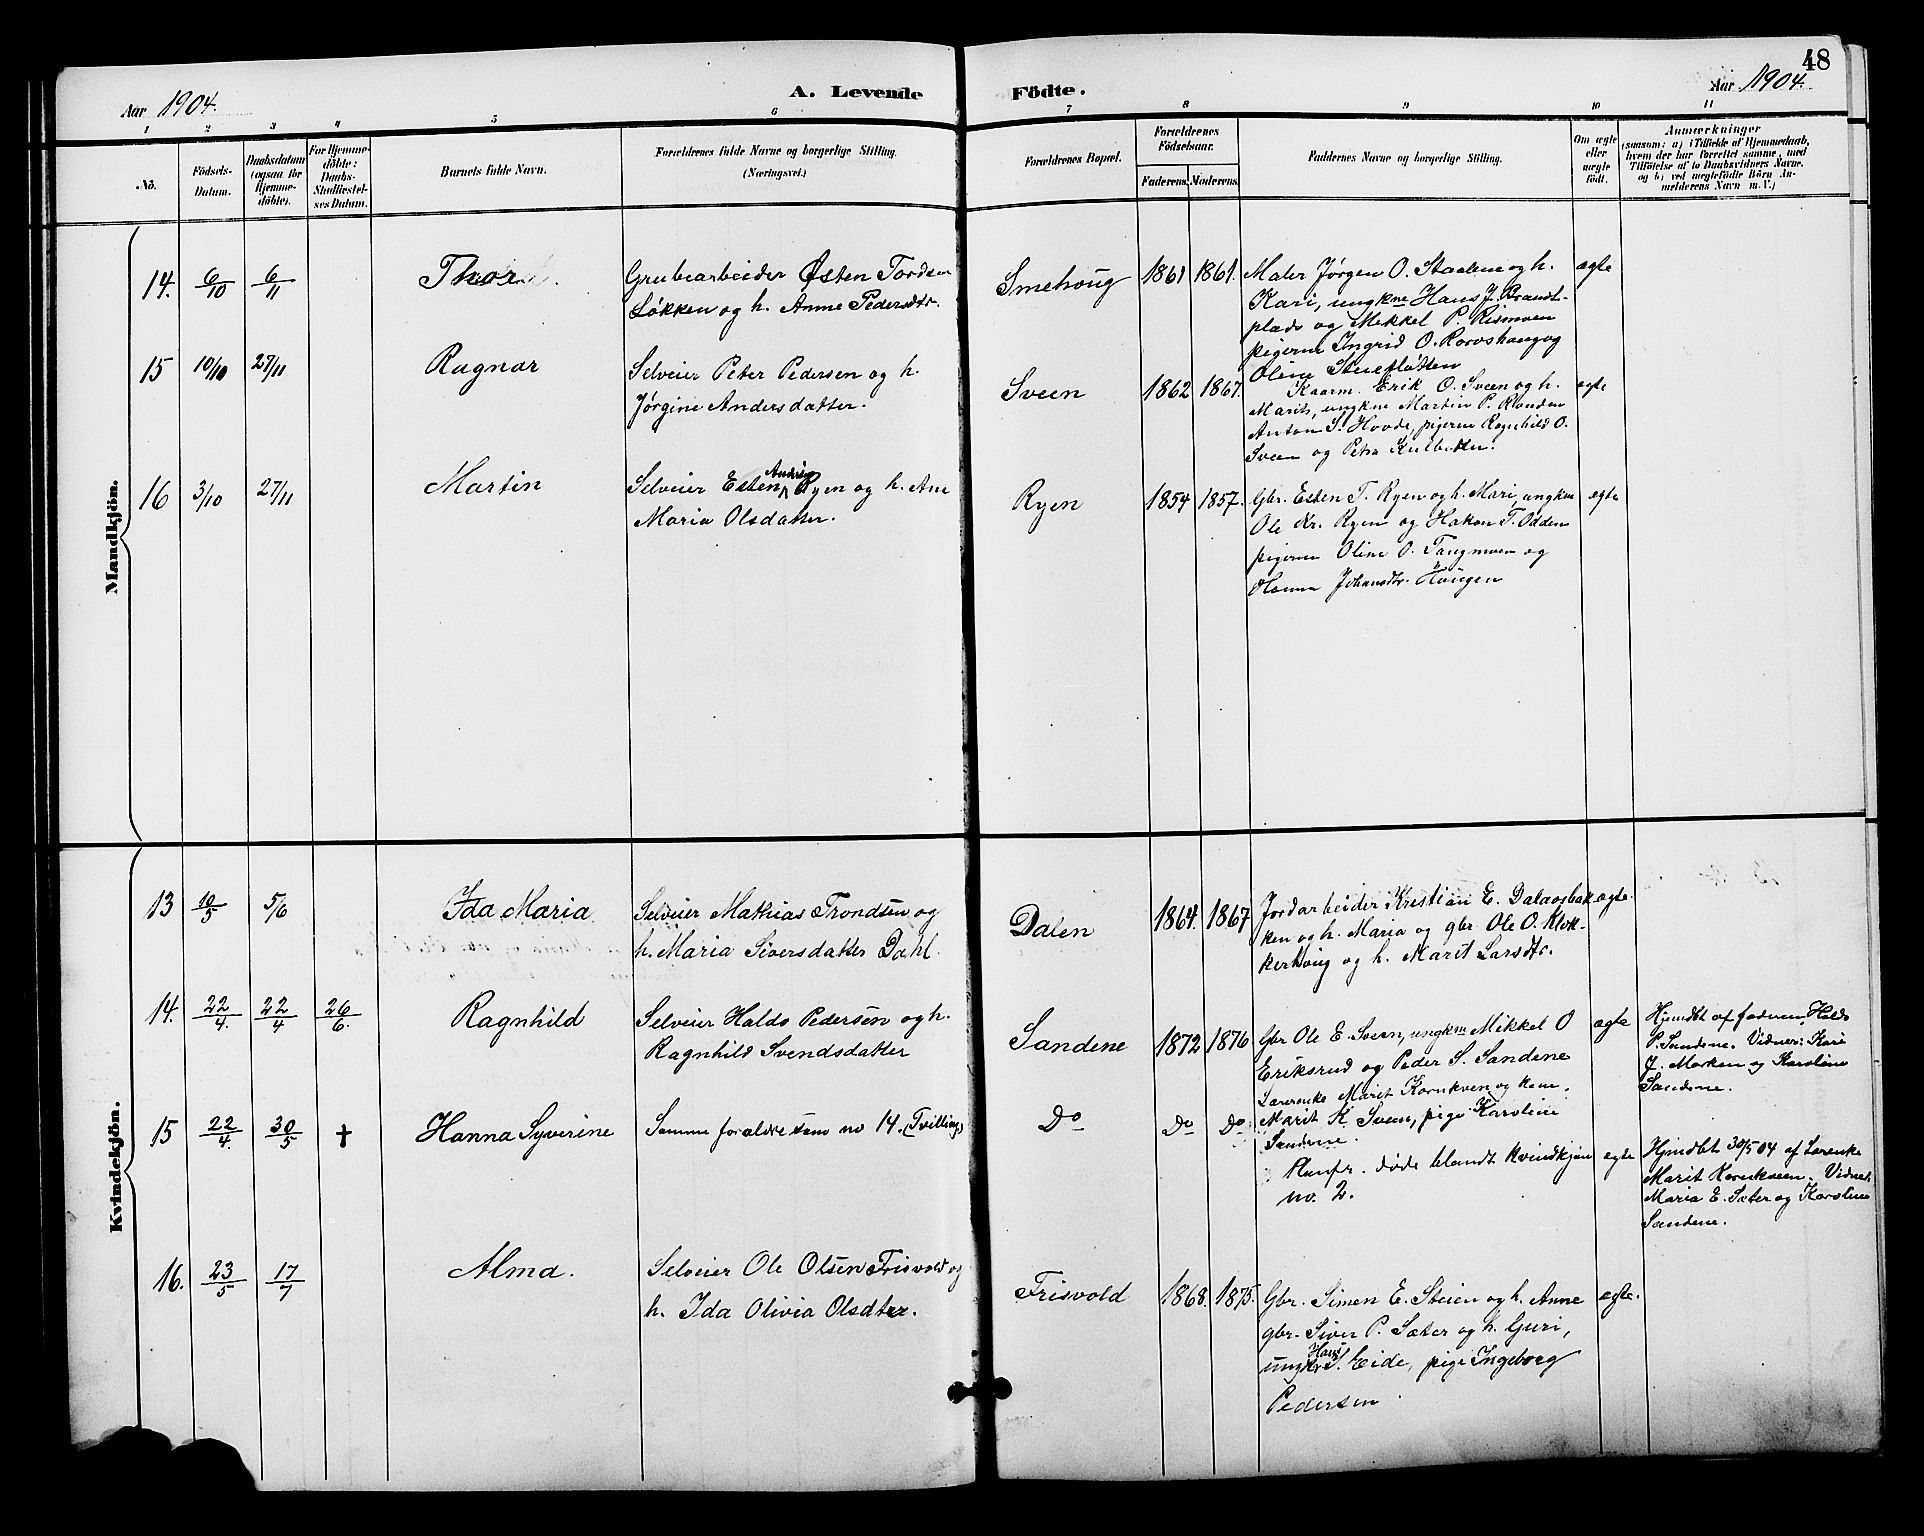 48
Aar 1904.
A. Levende
Födte.
Aar 1904.
1
2
3
4
5
6
7
8
9
10
11
No.
Födsels-
Datum.
Daabsdatum
(ogsaa for
Hjemme-
döbte).
For Hjemme-
döbte:
Daabs-
Stadfæstel-
ses Datum.
Barnets fulde Navn.
Forældrenes fulde Navne og borgerlige Stilling.
(Næringsvei.)
Forældrenes Bopæl.
Forældrenes
Födselsaar.
Faderens.
Moderens.
Faddernes Navne og borgerlige Stilling.
Om ægte
eller
uægte
födt.
Anmærkninger
(saasom: a) i Tilfælde af Hjemmedaab,
hvem der har forrettet samme, med
Tilföielse af to Daabsvidners Navne,
og b) ved uægtefödte Börn An-
melderens Navn m. V.)
Mandkjön.
14. 6/10 6/11
Thor
Grubearbeider Østen Tordsen
Løkken og h. Anne Pedersdtr.
Smehoug
1861 1861.
Maler Jørgen O. Staalene og h.
Kari, ungkne Hans J. Brandt-
plads og Mikkel P. Rismoen
pigerne Ingrid O. Rorvshaug og
Oline Stuefløtten
ægte
15 10/10 27/11
Ragnar
Selveier Peter Pedersen og h.
Jørgine Andersdatter.
Sveen
1862 1867.
Kaarm. Erik O. Sveen og h.
Marit, ungkne Martin P. Randen
Anton S. Hovde, pigerne Ragnhild O.
Sveen og Petra
ægte
16 3/10 27/11
Martin
Selveier Esten Andreas Ryen og h. Ane
Maria Olsdatter.
Ryen
1854 1857.
Gbr. Esten T. Ryen og h. Mari, ungkm
Ole Kr. Ryen og Hakon T. Odden
pigerne Oline O. Tangmoen og
Hanna Johansdtr. Haugen
ægte
Kvindekjön.
13 10/5 5/6
Ida Maria
Selveier Mathias Trondsen og
h. Maria Siversdatter Dahl.
Dalen
1864. 1867
Jordarbeider Kristian E. Dalaasbak-
ken og h. Maria og gbr Ole O. Klok-
kerhoug og h. Marit Larsdtr.
ægte.
14. 22/4. 22/4 26/6.
Ragnhild
Selveier Haldo Pedersen og h.
Ragnhild Svendsdatter
Sandene
1872 1876
Gbr Ole E. Sveen, ungkm Mikkel O
Eriksrud og Peder S. Sandene
Lærerenke Marit Kornkven og kone
Marit K. Sveen, pige Karoline
Sandene.
ægte
Hjemdbt af faderen, Haldo
P. Sandene. Vidner: Kari
J. Morken og Karoline
Sandene.
15 22/4. 30/5 †
Hanna Syverine
Samme foraldre som no 14. (Tvilling)
Do
Do Do
Hanfr. døde blandt kvindkjøn
no. 2.
ægte
Hjemdbt 30/5 04 af Lærenke
Marit Kornkveen. Vidner,
Maria E. Sæter og Karoline
Sandene.
16. 23/5 17/7
Alma.
Selveier Ole Olsen Frisvold og
h. Ida Olivia Olsdter.
Frisvold
1868. 1875.
Gbr. Simen E. Steien og h. Anne
gbr. Siver P. Sæter og h. Guri,
ungkr Hans S. Eide, pige Ingeborg
Pedersen.
ægte.